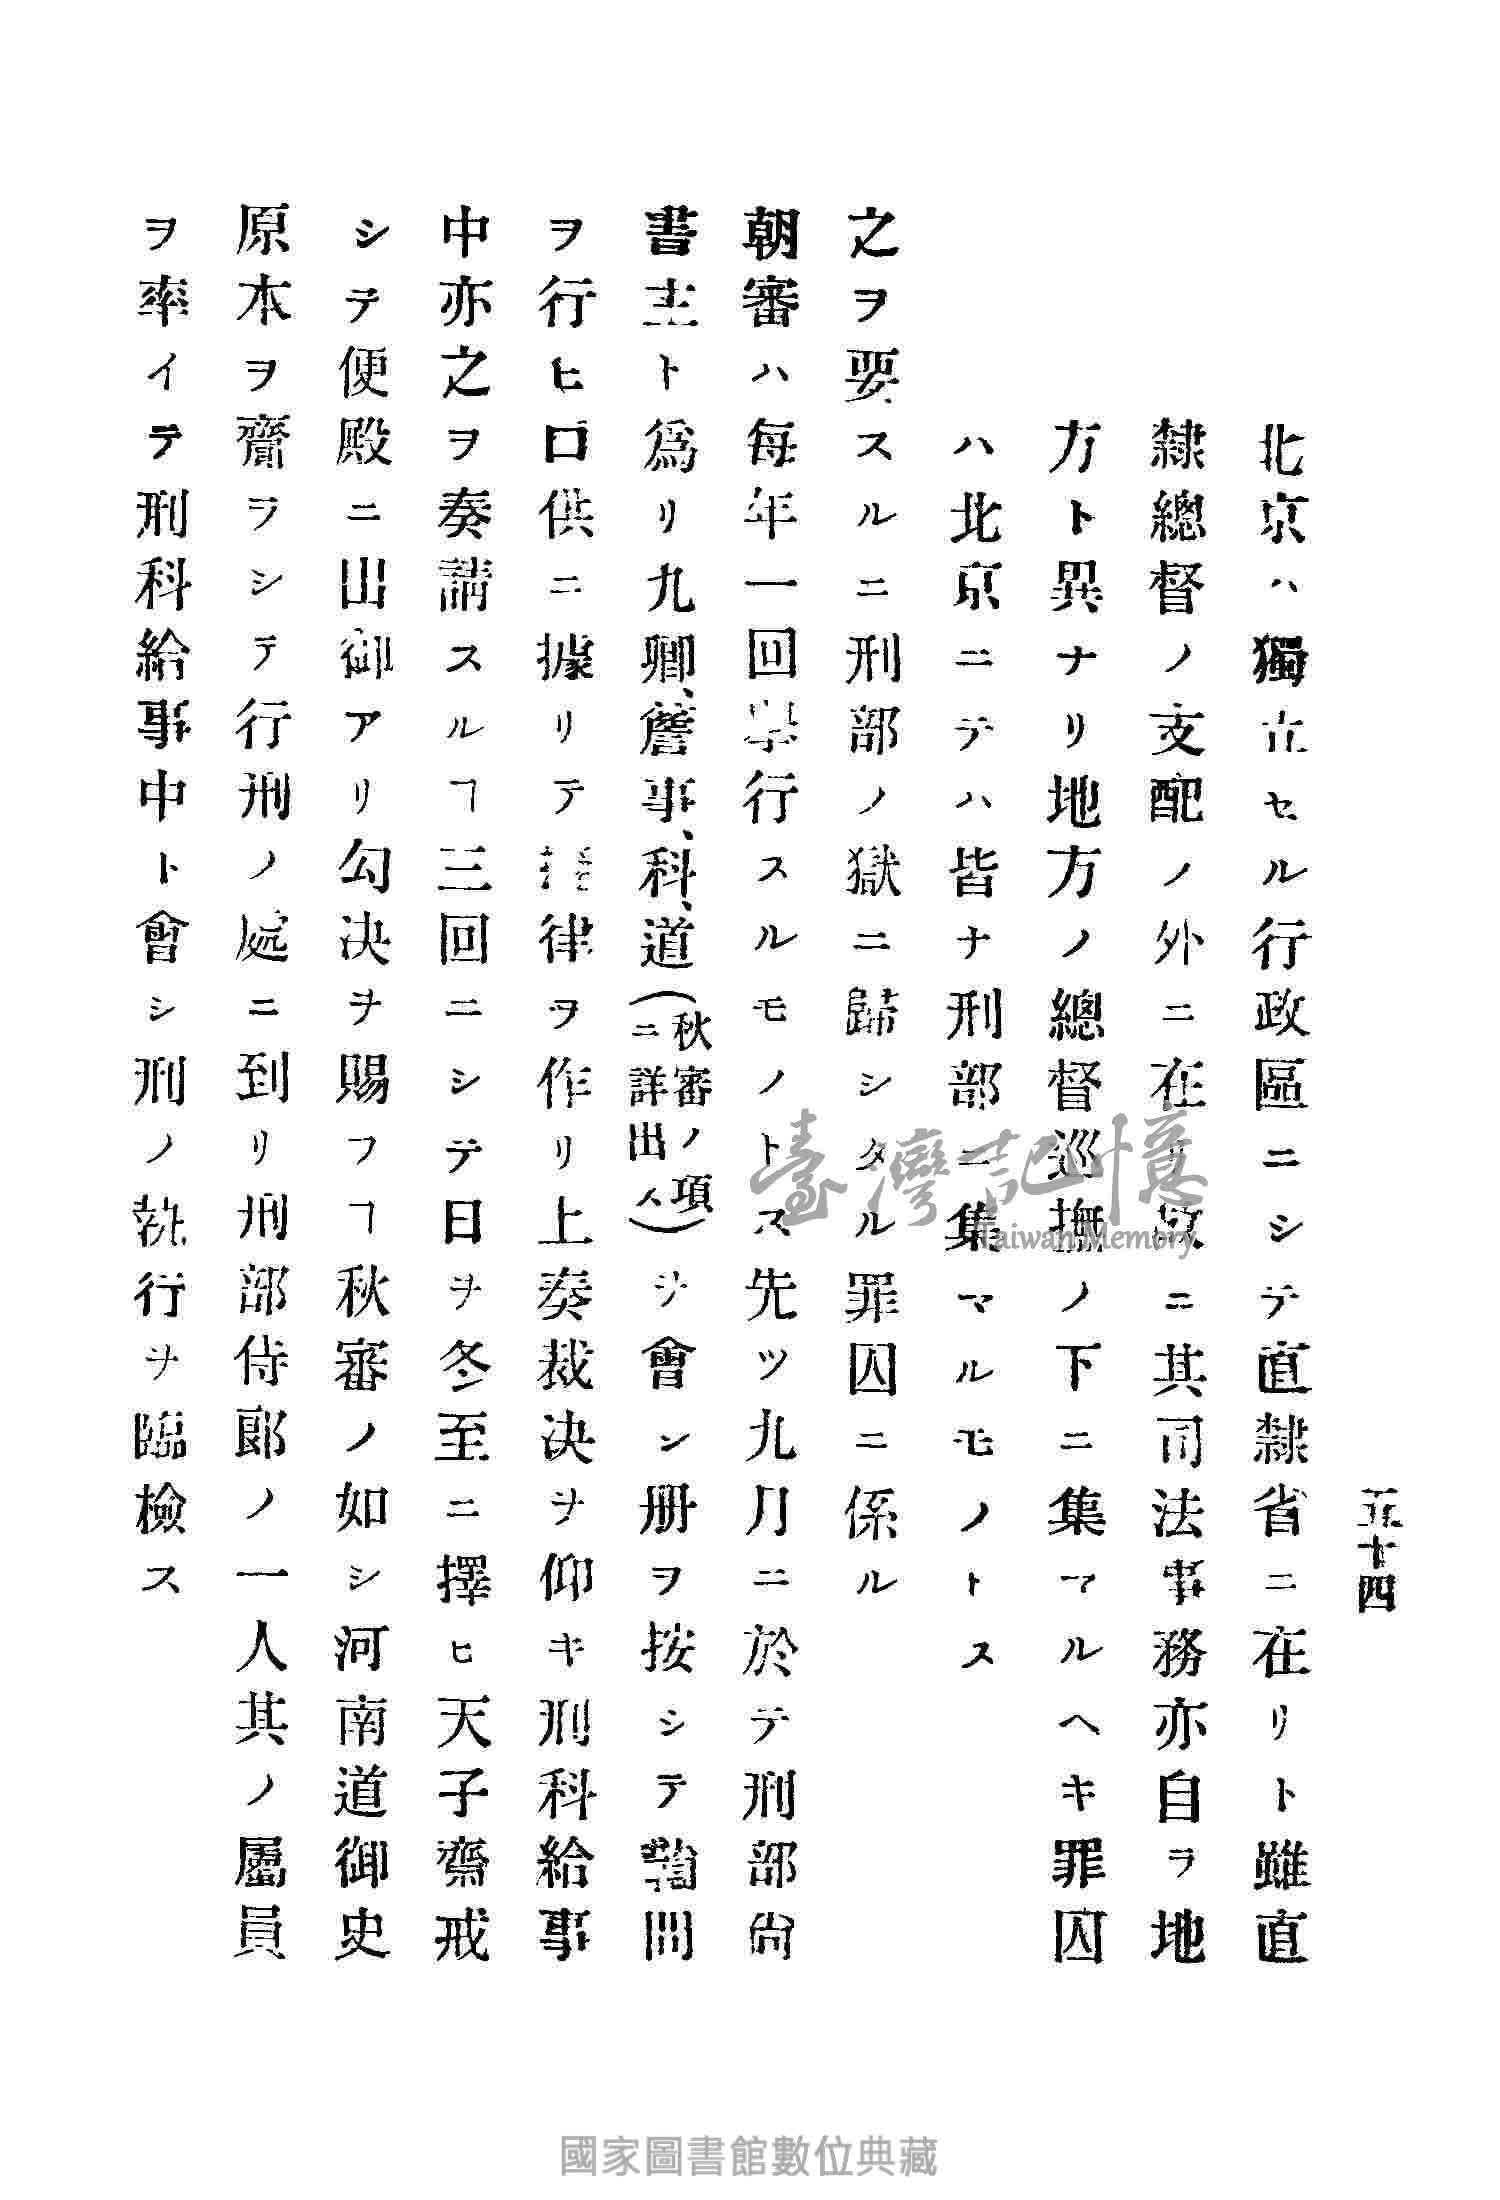 五十四
北京ハ獨立セル行政區ニシテ直隸省ニ在リト雖直
隸總督ノ支配ノ外ニ在リ故ニ其司法事務亦自ラ地
方ト異ナリ地方ノ總督巡撫ノ下ニ集マルヘキ罪囚
ハ北京ニテハ皆ナ刑部ニ集マルモノトス
之ヲ要スルニ刑部ノ獄ニ歸シタル罪囚ニ係ル
朝審ハ每年一回擧行スルモノトス先ツ九月ニ於テ刑部尙
書主ト爲リ九卿、詹事、科、道(秋審ノ項ニ詳出ス)ヲ會シ册ヲ按シテ鞫問
ヲ行ヒ口供ニ據リテ律ヲ作リ上奏裁決ヲ仰キ刑科給事
中亦之ヲ奏請スルヿ三回ニシテ日ヲ冬至ニ擇ヒ天子齋戒
シテ便殿ニ出御アリ勾決ヲ賜フヿ秋審ノ如シ河南道御史
原本ヲ齎ラシテ行刑ノ處ニ到リ刑部侍郞ノ一人其ノ屬員
ヲ率イテ刑科給事中ト會シ刑ノ執行ヲ臨檢ス
臺灣記憶
Taiwan Memory
國家圖書館數位典藏